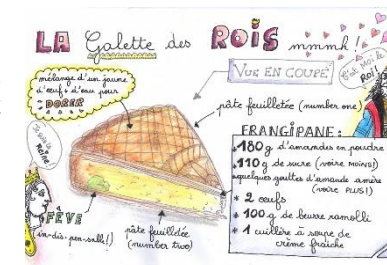 LA Galette des ROIS mmmh!
VUE EN COUPE
C'est moi le Roi!
mélange d'un jaune
d'œuf + d'eau pour
DORER
pâte feuilletée (number one)
Je suis la Reine
FRANGIPANE:
* 180 g d'amandes en poudre
* 110 g de sucre (voire MOINS!)
* quelques gouttes d'amande amère
(voire PLUS!)
* 2 œufs
* 100 g de beurre ramolli
* 1 cuillère à soupe de
crème fraîche
FÈVE
(in-dis-pen-sable!)
pâte feuilletée
(number two)